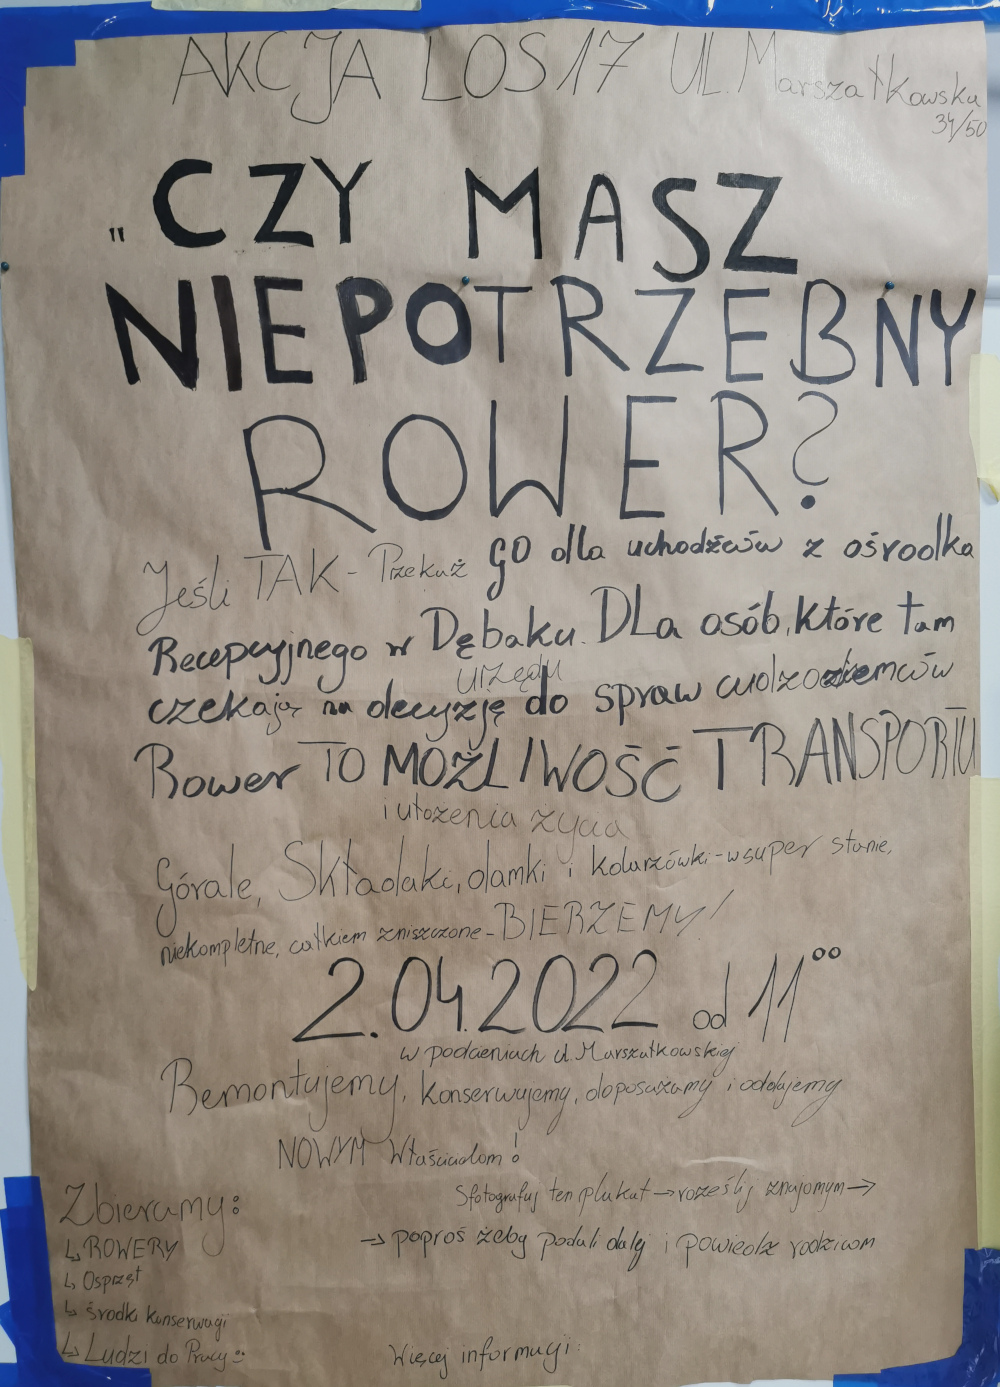 AKCJA LOS17 UL. Marszałkowska
34/50
"CZY MASZ
NIEPOTRZEBNY
ROWER?
Jeśli TAK - Przekaż GO dla uchodźców z ośrodka
Recepcyjnego w Dębaku. DLa osób, które tam
urzędu
czekają na decyzję do spraw cudzoziemców
Rower TO MOŻLIWOŚĆ TRANSPORTU
i ułożenia życia
Górale, Składaki, damki i kolarzówki - w super stanie,
niekompletne, całkiem zniszczone - BIERZEMY!
2.04.2022 od 11°°
w podcieniach ul. Marszałkowskiej
Remontujemy, konserwujemy, doposażamy i oddajemy
NOWYM Właścicielom!
Zbieramy:
↳ ROWERY
↳ Osprzęt
↳ środki konserwacji
↳ Ludzi do Pracy :)
Sfotografuj ten plakat → roześlij znajomym →
→ poproś żeby podali dalej i powiedz rodzicom
Więcej informacji: